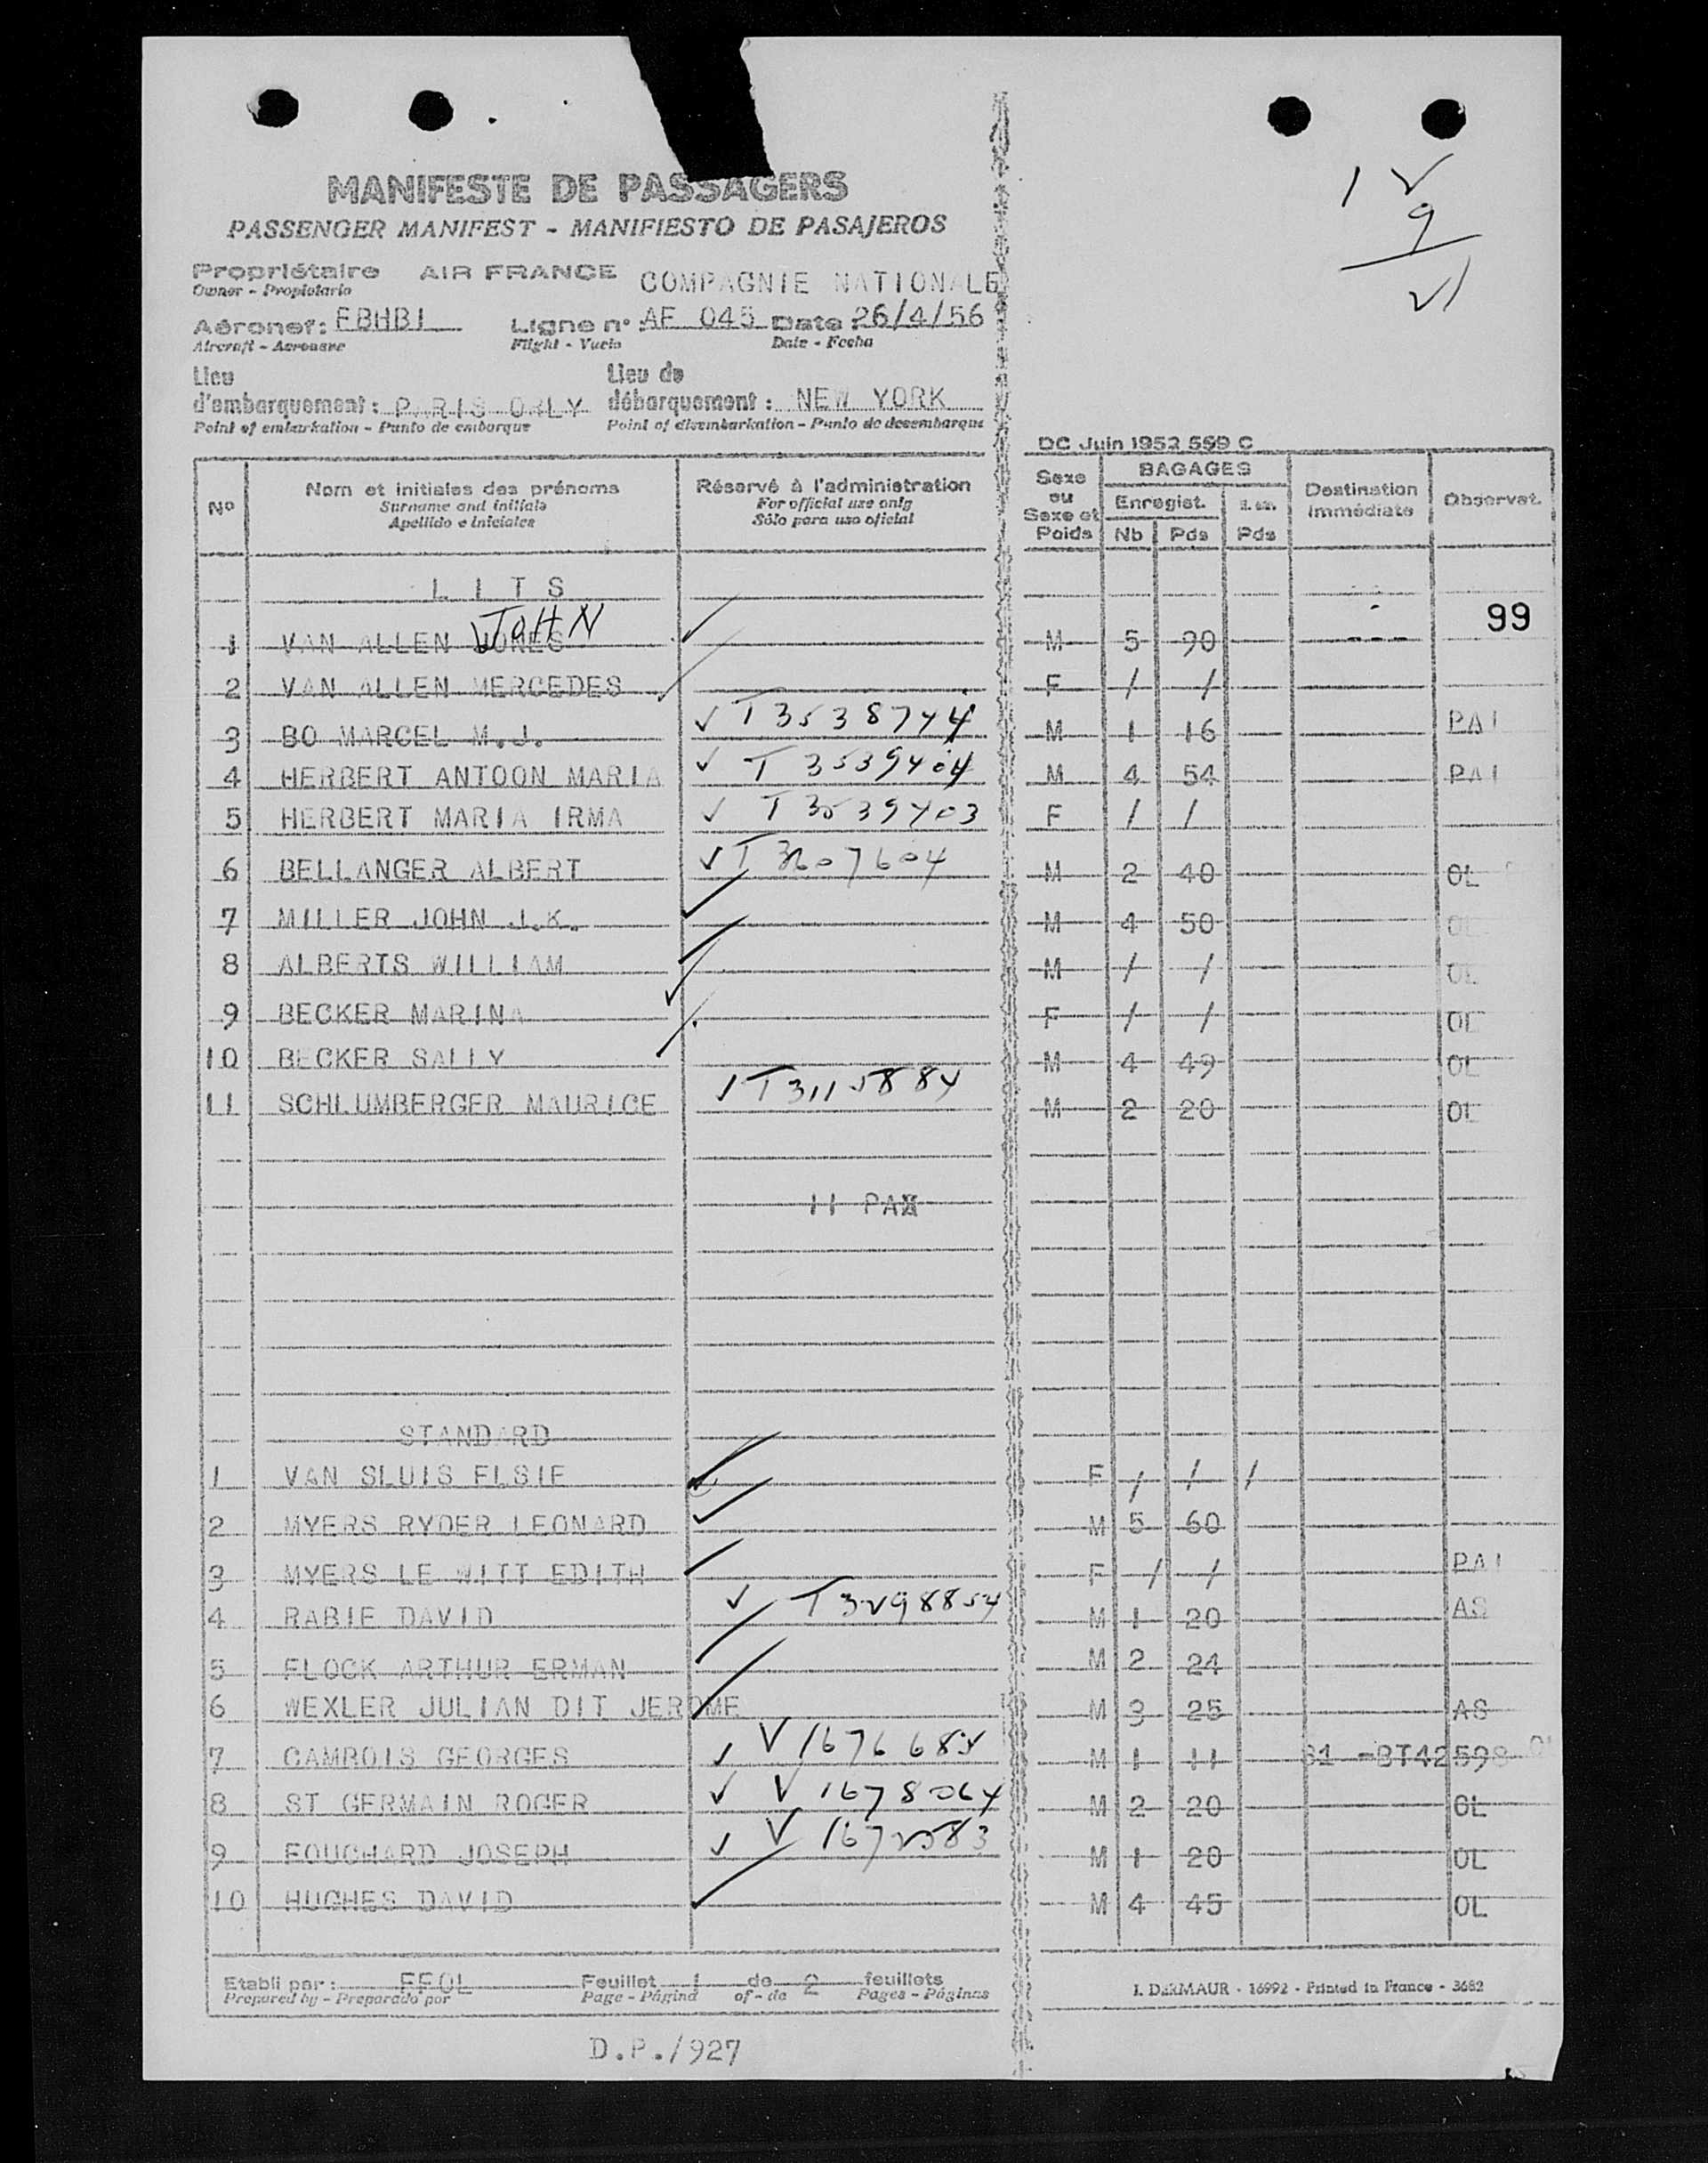 1 2
9
21
MANIFESTE DE PASSAGERS
PASSENGER MANIFEST - MANIFIESTO DE PASAJEROS
Propriétaire AIR FRANCE COMPAGNIE NATIONALE
Owner - Propietario
Aéronef: FBHBI Ligne n°: AF 045 Date: 26/4/56
Aircraft - Aeronave Flight - Vuelo Date - Fecha
Lieu Lieu de
d'embarquement: PARIS ORLY débarquement: NEW YORK
Point of embarkation - Punto de embarque Point of disembarkation - Punto de desembarque
DC Juin 1952 569 C
N° Nom et initiales des prénoms Réservé à l'administration Sexe ou Sexe et Poids BAGAGES Destination immédiate Observat.
Surname and initials For official use only Enregist.
Apellido e iniciales Sólo para uso oficial Nb Pds Pds
LITS
99
JOHN
1 VAN ALLEN JONES M 5 90 ---
2 VAN ALLEN MERCEDES F / /
3 BO MARCEL M.J. T3538744 M 1 16 PAI
4 HERBERT ANTOON MARIA T 3539404 M 4 54 PAI
5 HERBERT MARIA IRMA T 3539403 F / /
6 BELLANGER ALBERT T 3607604 M 2 40 OL
7 MILLER JOHN J.K. M 4 50 OL
8 ALBERTS WILLIAM M / / OL
9 BECKER MARINA F / / OL
10 BECKER SALLY M 4 49 OL
11 SCHLUMBERGER MAURICE T3115884 M 2 20 OL
11 PAX
STANDARD
1 VAN SLUIS ELSIE F / / /
2 MYERS RYDER LEONARD M 5 60
3 MYERS LE WITT EDITH F / / PAI
4 RABIE DAVID T3298854 M 1 20 AS
5 FLOCK ARTHUR ERMAN M 2 24
6 WEXLER JULIAN DIT JEROME M 3 25 AS
7 CAMBOIS GEORGES V1676684 M 1 11 -BT42598
8 ST GERMAIN ROGER V 1678064 M 2 20 OL
9 FOUCHARD JOSEPH V 1672583 M 1 20 OL
10 HUGHES DAVID M 4 45 OL
Etabli par: FFOL Feuillet 1 de 2 feuillets
Prepared by - Preparado por Page - Página of - de Pages - Páginas
I. DERMAUR - 16992 - Printed in France - 3682
D.P./927